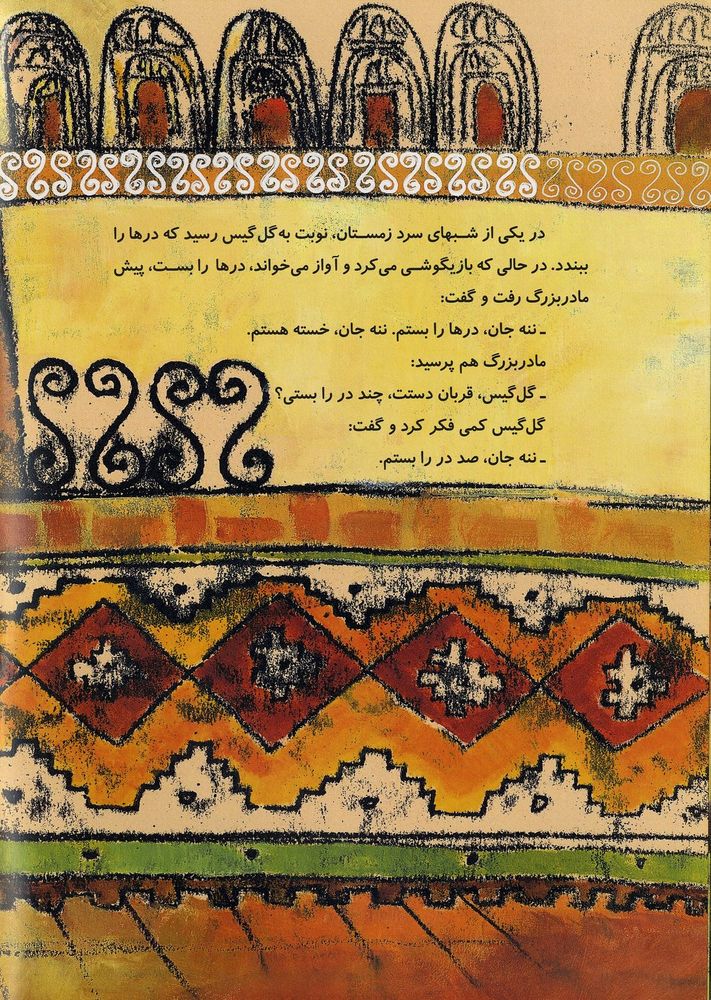 در یکی از شبهای سرد زمستان، نوبت به گل‌گیس رسید که درها را
ببندد. در حالی که بازیگوشی می‌کرد و آواز می‌خواند، درها را بست، پیش
مادربزرگ رفت و گفت:
ـ ننه جان، درها را بستم. ننه جان، خسته هستم.
مادربزرگ هم پرسید:
ـ گل‌گیس، قربان دستت، چند در را بستی؟
گل‌گیس کمی فکر کرد و گفت:
ـ ننه جان، صد در را بستم.